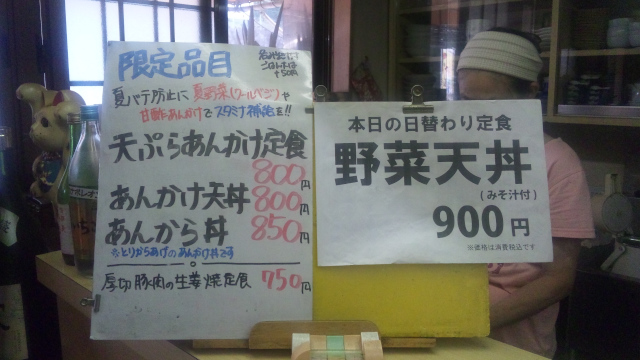 限定品目
夏バテ防止に 夏野菜(ゴールベジ)や
甘酢あんかけで スタミナ補給を!!
天ぷらあんかけ定食
800円
あんかけ天丼 800円
あんから丼 850円
とりからあげのあんかけ丼です
厚切豚肉の生姜焼定食 750円
本日の日替わり定食
野菜天丼
(みそ汁付)
900円
※価格は消費税込です